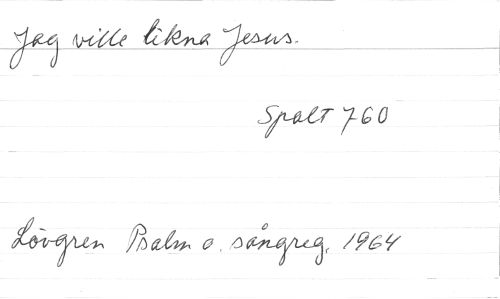 Jag ville likna Jesus.
Spalt 760
Lövgren Psalm o. sångreg. 1964